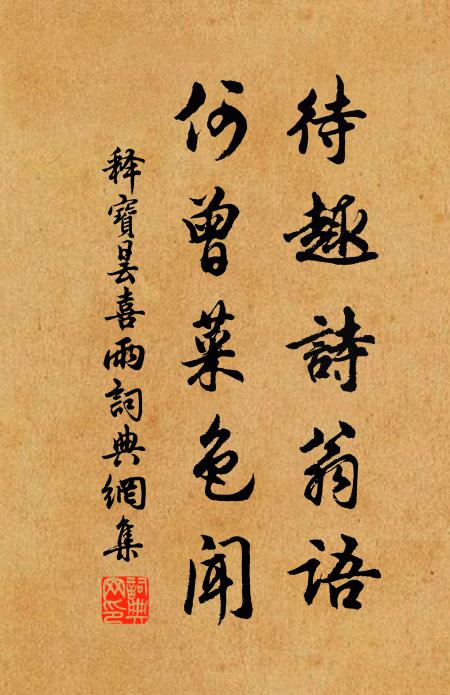 待趣詩翁語
何曾菜色聞
释寶曇喜雨詞典網集
詞典网印